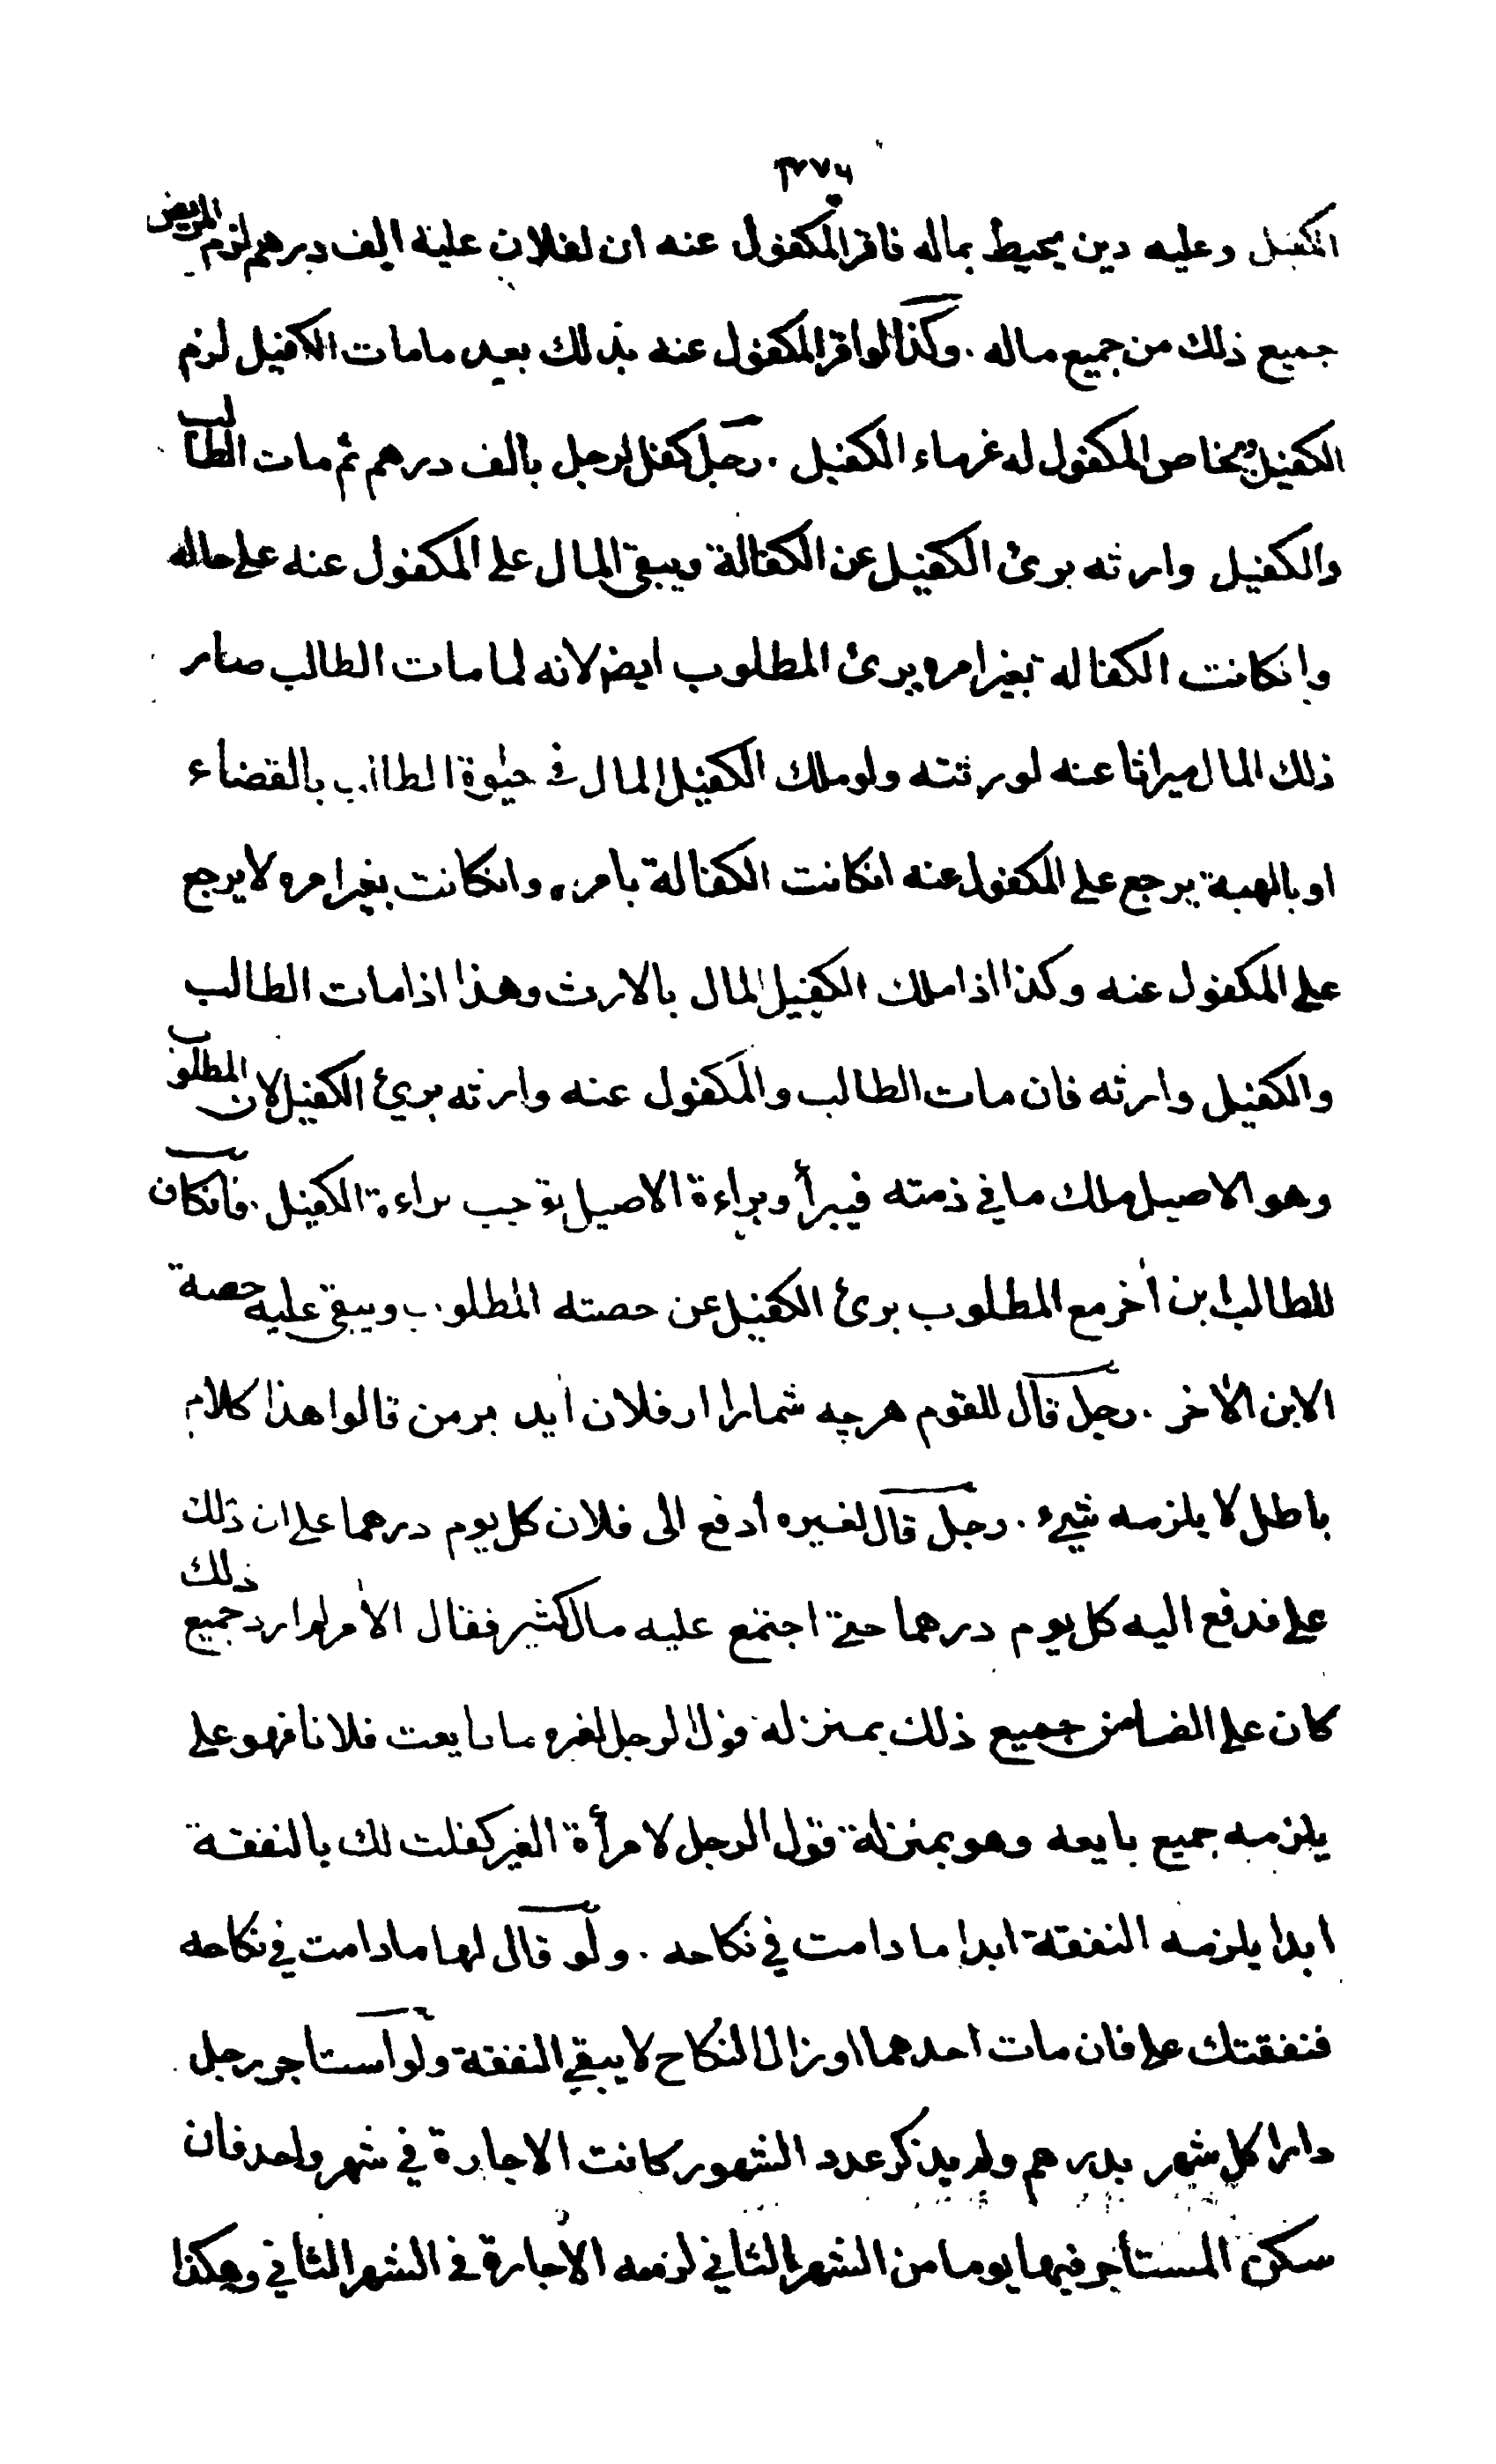 ٣٧٦
الكفيل وعليه دين يحيط بماله فاقر المكفول عنه ان لفلان علية الف درهم لزم المريض
جميع ذلك من جميع ماله . وكذا لو اقر المكفول عنه بذلك بعد ما مات الكفيل لزم
الكفيل ويخاص المكفول له غرماء الكفيل . رجل كفل لرجل بالف درهم ثم مات الطالب
والكفيل وارثه برئ الكفيل عن الكفالة ويبقى المال على المكفول عنه على حاله
وانكانت الكفاله بغير امره برئ المطلوب ايض لانه لما مات الطالب صار
ذلك المال ميراثا عنه لورثته ولو ملك الكفيل المال في حيوة الطالب بالقضاء
او بالهبة يرجع على المكفول عنه انكانت الكفالة بامره وانكانت بغير امره لا يرجع
على المكفول عنه وكذا اذا ملك الكفيل المال بالارث وهذا اذا مات الطالب
والكفيل وارثه فان مات الطالب والمكفول عنه وارثه بريئ الكفيل لان المطلوب
وهو الاصيل ملك ما في ذمته فيبرأ وبراءة الاصيل توجب براءة الكفيل . فانكان
للطالب ابن أخر مع المطلوب برئ الكفيل عن حصته المطلوب ويبقى عليه حصة
الابن الأخر . رجل قال للقوم هرچه شمارا از فلان ايد بر من قالوا هذا كلام
باطل لا يلزمه شيء . رجل قال لغيره أدفع الى فلان كل يوم درهما على ان ذلك
على فدفع اليه كل يوم درهما حتى اجتمع عليه مال كثير فقال الأمر لم ارد جميع ذلك
كان على الضامن جميع ذلك بمنزله قول الرجل لغيره ما بايعت فلانا فهو على
يلزمه جميع بايعه وهو بمنزلة قول الرجل لامرأة الغير كفلت لك بالنفقة
ابدا يلزمه النفقة ابدا ما دامت في نكاحه . ولو قال لها ما دامت في نكاحه
فنفقتك على فان مات احدهما او زال النكاح لا يبقى النفقة ولو استاجر رجل
دارا كل شهر بدرهم ولم يذكر عدد الشهور كانت الاجارة في شهر واحد فان
سكن المستاجر فيها يوما من الشهر الثاني لزمه الاجارة في الشهر الثاني وهكذا